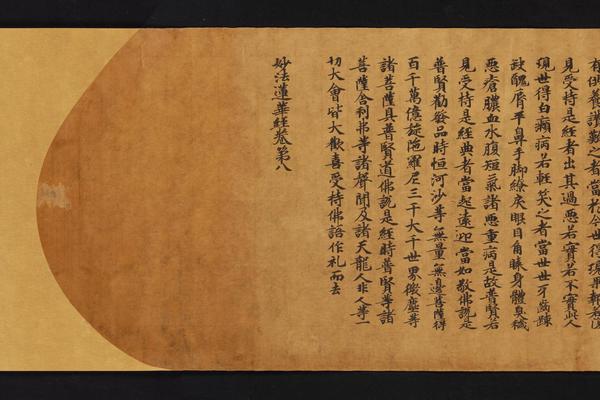 有供養讃歎之者當於今世得現果報若復
見受持是經者出其過惡若實若不實此人
現世得白癩病若輕笑之者當世世牙齒踈
缺醜脣平鼻手脚繚戾眼目角睞身體臭穢
惡瘡膿血水腹短氣諸惡重病是故普賢若
見受持是經典者當起遠迎當如敬佛說是
普賢勸發品時恒河沙等無量無邊菩薩得
百千萬億旋陁羅尼三千大千世界微塵等
諸菩薩具普賢道佛說是經時普賢等諸
菩薩舍利弗等諸聲聞及諸天龍人非人等一
切大會皆大歡喜受持佛語作礼而去
妙法蓮華經卷第八